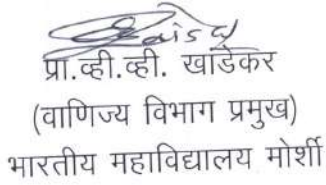 प्रा.व्ही.व्ही. खांडेकर
(वाणिज्य विभाग प्रमुख)
भारतीय महाविद्यालय मोर्शी